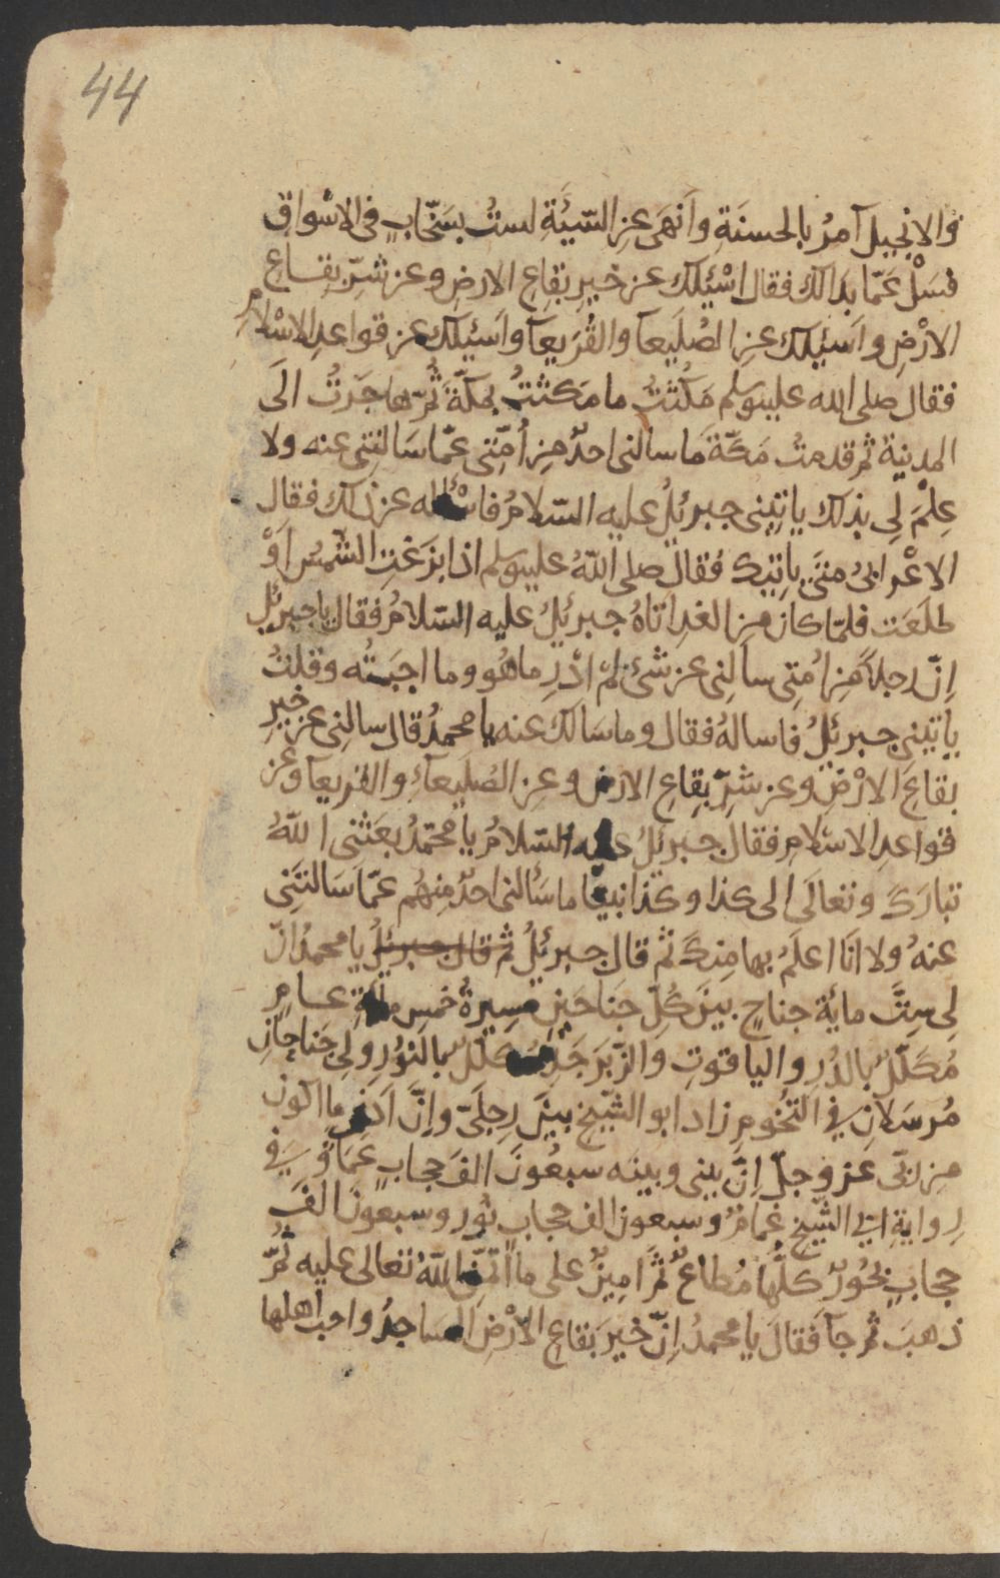 44
والانجيل آمرُ بالحسنَةِ وأنهَى عنِ السّيئَةِ لستُ بسَخّابٍ فى الاسْواقِ
فسَلْ عَمّا بدَالك فقال اسْئِلك عن خيرِ بقاعِ الارضِ وعن شرِّ بقاع
الارْضِ واسئِلك عنِ الصُلَيعآ والقُرَيعآ واَسئِلك عن قواعدِ الاسْلامِ
فقال صلى الله عليه وسلم مَكُثتُ ما مَكثتُ بمكّةَ ثُمّ هاجَرتُ الَى
المدنية ثم قدمتُ مَكّةَ ما سالنى احدٌ مِن اُمّتِى عمّا سَالتَنِى عنه ولا
عِلْمَ لِى بذلك ياتِينى جبرئِلُ عليه السّلامُ فاسْئله عن ذلك فقال
الاعْرابىُ متَى ياتِيك فقالَ صلى اللهُ عليه وسلم اذا بزَغتِ الشّمسُ اَوْ
طلَعَت فلمّا كان مِن الغدِ اتاهُ جبرئِلُ عليه السّلامُ فقال يا جبرئِل
اِنّ رجلاً مِن اُمّتِى سالَنِى عن شئٍ لمْ ادْرِ ماهُو وما اجبَتُه وقلتُ
ياتينِى جبرئلُ فاسالهُ فقال وما سَالك عنه يا محمدُ قال سالنِى عن خيرِ
بقاعِ الارْضِ وعن شرِّ بقاعِ الارضِ وعنِ الصُلَيعآءِ والقريعآ وعن
قواعدِ الاسْلامِ فقال جبرئلُ عليه السّلامُ يا محمّدُ بعَثنى اللهُ
تبارَكَ وتعالَى الى كذا وكذا نبيًّا ما سَألنى احدٌ مِنهُم عمّا سَالتَنِى
عنهُ ولا انَا اعلَمُ بها مِنكَ ثم قال جبرئِلُ ثم قال جبرئلُ يا محمدُ انّ
لِى سِتَّ مائِة جناحٍ بينَ كُلِّ جَناحَينِ مَسِيرةُ خمسِ مائةِ عامٍ
مُكلّلٌ بالدُرِ واليا قوتِ والزّبَرجَدِ مُكلّلٌ بالنُورِ ولِى جَناحانِ
مُرسَلانِ فِى التّخُومِ زاد ابو الشّيخِ بينَ رِجلَىّ وانَّ اَدنَى ما اكُونُ
مِن ربّى عز وجلّ اِنّ بينى وبينه سبعُونَ الفَ حجابٍ غَمامٌ وَفِى
رِوايةِ ابى الشّيخِ غمامٌ وسبعون الف حجابٍ نُور وسبعون الفَ
حجابٍ بحُورٌ كلّها مُطاعٌ ثَمَّ امِينٌ على ما ائتمنَنِى اللهُ تعالى عليه ثُمّ
ذهبَ ثم جآ فقالَ يا محمدُ اِنّ خيرَ بقاعِ الارْضِ المساجدُ واحبّ اهلِها